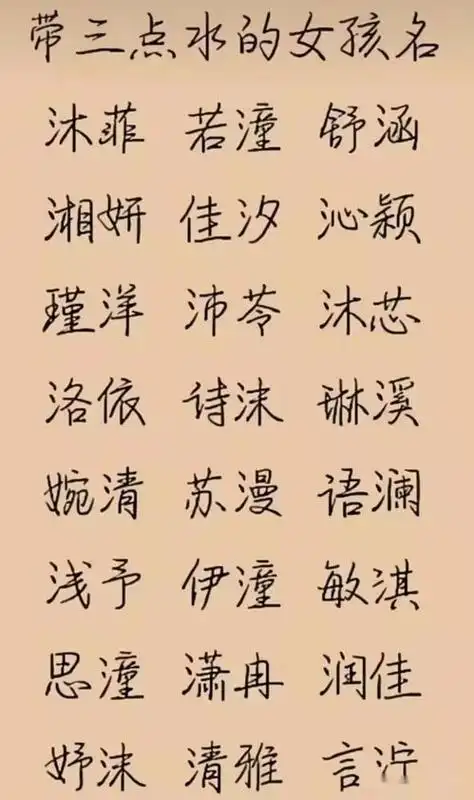 带三点水的女孩名
沐菲 若潼 舒涵
湘妍 佳汐 沁颖
瑾洋 沛苓 沐芯
洛依 诗沫 琳溪
婉清 苏漫 语澜
浅予 伊潼 敏淇
思潼 潇冉 润佳
妤沫 清雅 言泞